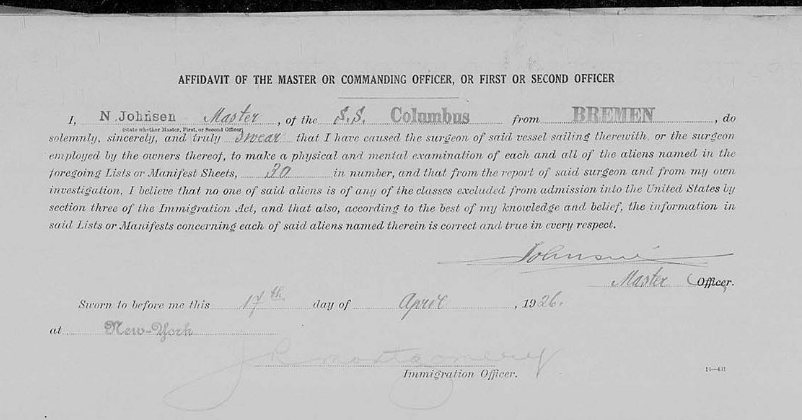 AFFIDAVIT OF THE MASTER OR COMMANDING OFFICER, OR FIRST OR SECOND OFFICER
I, N. Johnsen Master, of the S.S. Columbus from BREMEN, do
(State whether Master, First, or Second Officer)
solemnly, sincerely, and truly swear that I have caused the surgeon of said vessel sailing therewith, or the surgeon
employed by the owners thereof, to make a physical and mental examination of each and all of the aliens named in the
foregoing Lists or Manifest Sheets, 30 in number, and that from the report of said surgeon and from my own
investigation, I believe that no one of said aliens is of any of the classes excluded from admission into the United States by
section three of the Immigration Act, and that also, according to the best of my knowledge and belief, the information in
said Lists or Manifests concerning each of said aliens named therein is correct and true in every respect.
Johnsen
Master Officer.
Sworn to before me this 17th day of April, 1926.
at New-York
Montgomery
Immigration Officer.